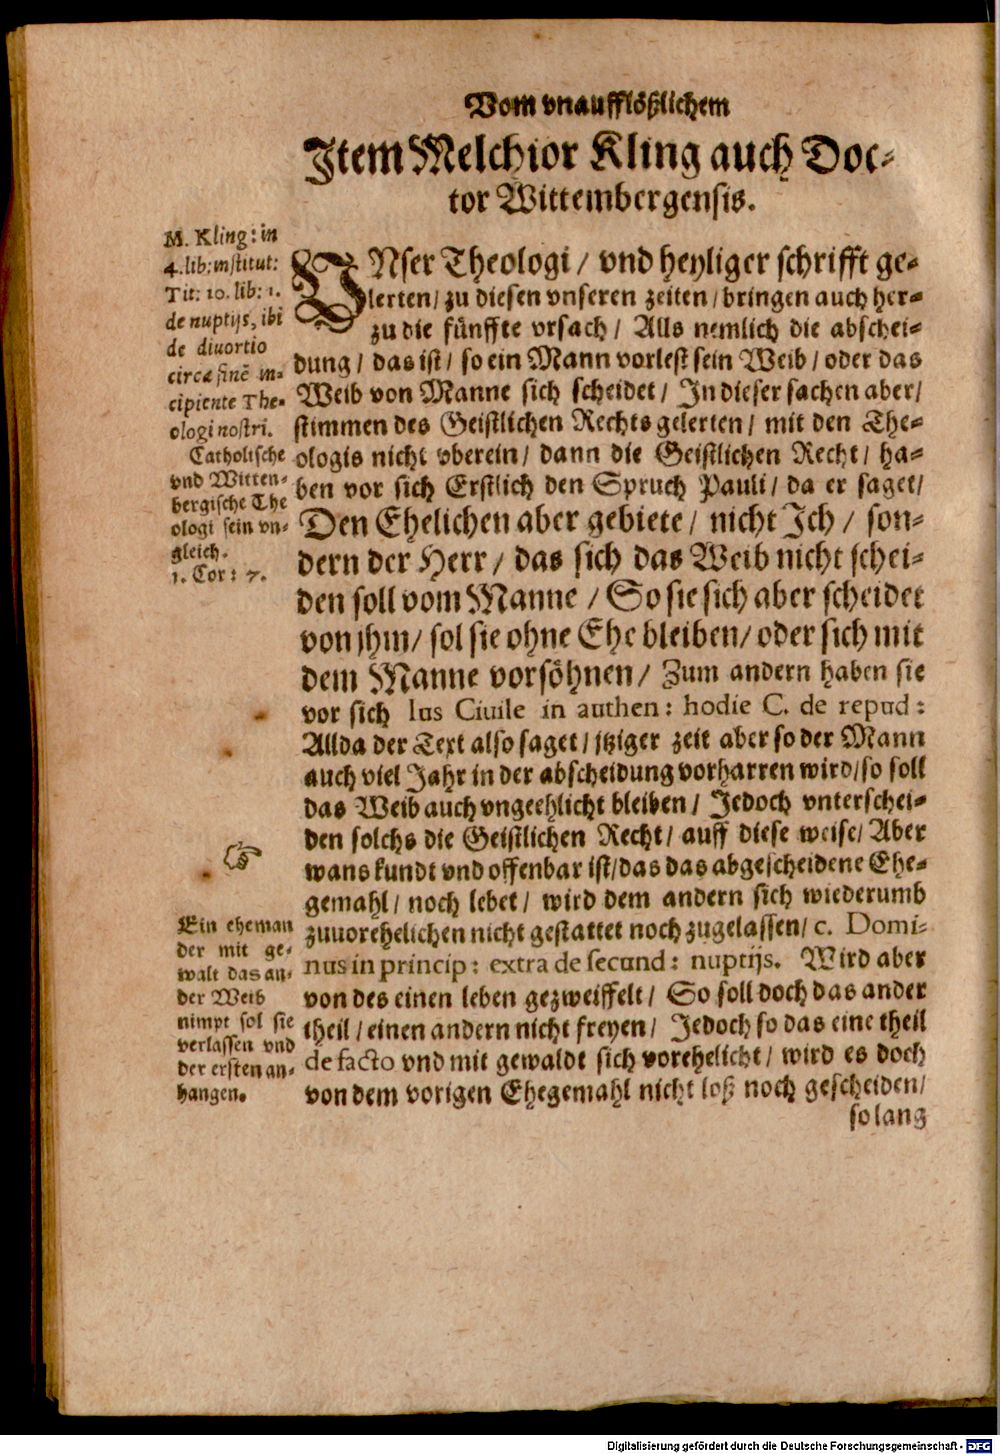 Vom vnaufflößlichem
Item Melchior Kling auch Doc-
tor Wittembergensis.
M. Kling: in
4. lib: institut:
Tit: 10. lib: 1.
de nuptijs, ibi
de diuortio
circa finē in-
cipiente The-
ologi nostri.
Catholische
vnd Witten-
bergische The
ologi sein vn-
gleich.
1. Cor: 7.
VNser Theologi / vnd heyliger schrifft ge-
lerten / zu diesen vnseren zeiten / bringen auch her-
zu die fünffte vrsach / Alls nemlich die abschei-
dung / das ist / so ein Mann vorlest sein Weib / oder das
Weib von Manne sich scheidet / In dieser sachen aber /
stimmen des Geistlichen Rechts gelerten / mit den The-
ologis nicht vberein / dann die Geistlichen Recht / ha-
ben vor sich Erstlich den Spruch Pauli / da er saget /
Den Ehelichen aber gebiete / nicht Ich / son-
dern der Herr / das sich das Weib nicht schei-
den soll vom Manne / So sie sich aber scheidet
von jhm / sol sie ohne Ehe bleiben / oder sich mit
dem Manne vorsöhnen / Zum andern haben sie
vor sich Ius Ciuile in authen: hodie C. de repud:
Allda der Text also saget / jtziger zeit aber so der Mann
auch viel Jahr in der abscheidung vorharren wird / so soll
das Weib auch vngeehlicht bleiben / Jedoch vnterschei-
den solchs die Geistlichen Recht / auff diese weise / Aber
wans kundt vnd offenbar ist / das das abgescheidene Ehe-
gemahl / noch lebet / wird dem andern sich wiederumb
zuuorehelichen nicht gestattet noch zugelassen / c. Domi-
nus in princip: extra de secund: nuptijs. Wird aber
von des einen leben gezweiffelt / So soll doch das ander
theil / einen andern nicht freyen / Jedoch so das eine theil
de facto vnd mit gewaldt sich vorehelicht / wird es doch
von dem vorigen Ehegemahl nicht loß noch gescheiden /
Ein eheman
der mit ge-
walt das an-
der Weib
nimpt sol sie
verlassen vnd
der ersten an-
hangen.
so lang
Digitalisierung gefördert durch die Deutsche Forschungsgemeinschaft - DFG